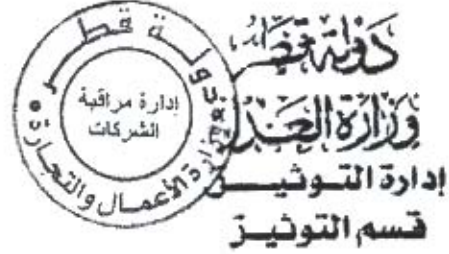 دولة قطر
وزارة العدل
إدارة التوثيــق
قسم التوثيـق
دولة قطر
وزارة الأعمال والتجارة
إدارة مراقبة
الشركات